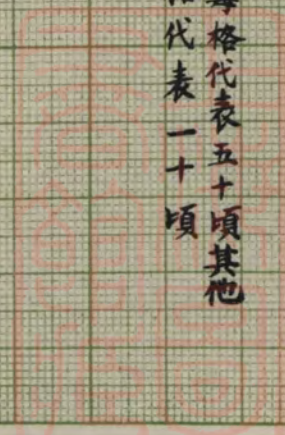 每格代表五十頃其他
代表一十頃